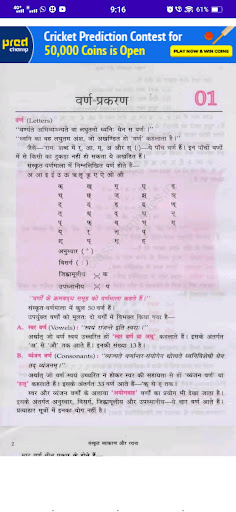 9:16
61%
pred
champ
Cricket Prediction Contest for
50,000 Coins is Open
PLAY NOW & WIN COINS
वर्ण-प्रकरण
01
वर्ण (Letters)
"वर्ण्यते अभिव्यज्यते वा लघुतमो ध्वनिः येन स वर्णः।"
"ध्वनि का वह लघुतम अंश, जो अखण्डित हो 'वर्ण' कहलाता है।"
जैसे—रामः शब्द में र्, आ, म्, अ और स् (:)—ये पाँच वर्ण हैं। इन पाँचों वर्णों
में से किसी का टुकड़ा नहीं हो सकता ये अखण्डित हैं।
संस्कृत वर्णमाला में निम्नलिखित वर्ण होते हैं—
अ आ इ ई उ ऊ ऋ ॠ ए ऐ ओ औ
क् ख् ग् घ् ङ्
च् छ् ज् झ् ञ्
ट् ठ् ड् ढ् ण्
त् थ् द् ध् न्
प् फ् ब् भ् म्
य् र् ल् व्
श् ष् स् ह्
अनुस्वार ( ं )
विसर्ग ( : )
जिह्वामूलीय ≍ क
उपध्मानीय ≍ प
"वर्णों के क्रमबद्ध समूह को वर्णमाला कहते हैं।"
संस्कृत वर्णमाला में कुल 50 वर्ण हैं।
उपर्युक्त वर्णों को मूलतः दो वर्गों में विभक्त किया गया है—
A. स्वर वर्ण (Vowels) : "स्वयं राजन्ते इति स्वराः।"
अर्थात् जो वर्ण स्वयं उच्चरित हों 'स्वर वर्ण या अच्' कहलाते हैं। इसके अंतर्गत
'अ' से 'औ' तक आते हैं। इनकी संख्या 13 है।
B. व्यंजन वर्ण (Consonants) :
अर्थात् जो वर्ण स्वयं उच्चरित न होकर स्वर की सहायता से हों 'व्यंजन वर्ण' या
'हल्' कहलाते हैं। इसके अंतर्गत 33 वर्ण आते हैं—'क्' से ह् तक।
स्वर और व्यंजन वर्णों के अलावा 'अयोगवाह' वर्णों का प्रयोग भी देखा जाता है।
इसके अंतर्गत अनुस्वार, विसर्ग, जिह्वामूलीय और उपध्मानीय—ये चार वर्ण आते हैं।
प्रत्याहार सूत्रों में इनका योग नहीं है।
2
संस्कृत व्याकरण और रचना